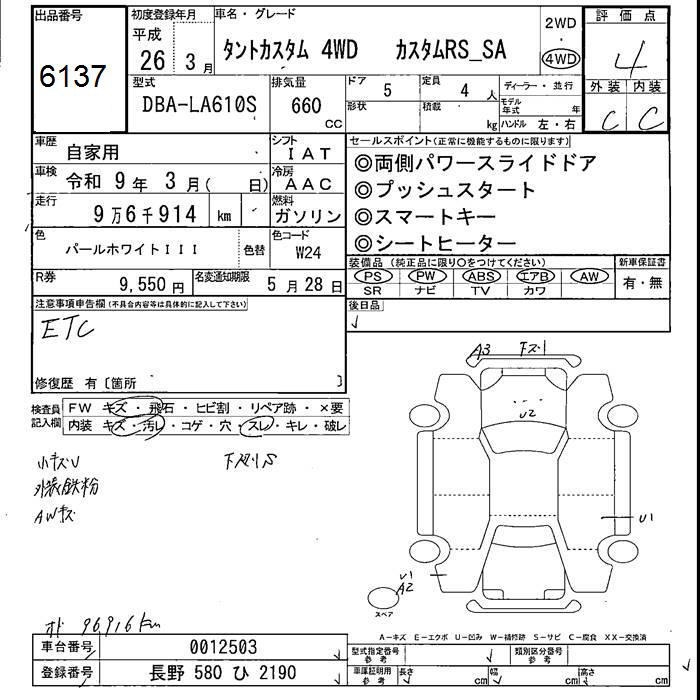 出品番号
6137
初度登録年月
平成
26 3月
車名・グレード
タントカスタム 4WD カスタムRS_SA
2WD
4WD
評価点
4
外装 内装
C C
型式
DBA-LA610S
排気量
660
CC
ドア
5
定員
4 人
形状
積載
kg
ディーラー・並行
モデル年式 年
ハンドル 左・右
車歴
自家用
シフト
IAT
車検
令和 9年 3月( 日)
冷房
AAC
走行
9万6千914 km
燃料
ガソリン
色
パールホワイトIII
色替
色コード
W24
R券
9,550円
名変通知期限
5月28日
セールスポイント(正常に機能するものに限ります)
◎両側パワースライドドア
◎プッシュスタート
◎スマートキー
◎シートヒーター
装備品(純正品に限り○をつけてください)
PS PW ABS エアB AW
SR ナビ TV カワ
新車保証書
有・無
後日品
注意事項申告欄(不具合内容等は具体的に記入して下さい)
ETC
修復歴 有〔箇所 〕
検査員記入欄
FW キズ・飛石・ヒビ割・リペア跡・×要
内装 キズ・汚レ・コゲ・穴・スレ・キレ・破レ
小キズU
外装鉄粉
AWキズ
下スリS
A3 下ズリ
U2
U1
U1
A2
スペア
A−キズ E−エクボ U−凹み W−補修跡 S−サビ C−腐食 XX−交換済
オド 96916km
車台番号
0012503
登録番号
長野 580 ひ 2190
型式指定番号
参考
類別区分番号
参考
車庫証明用
参考
長さ cm 幅 cm 高さ cm